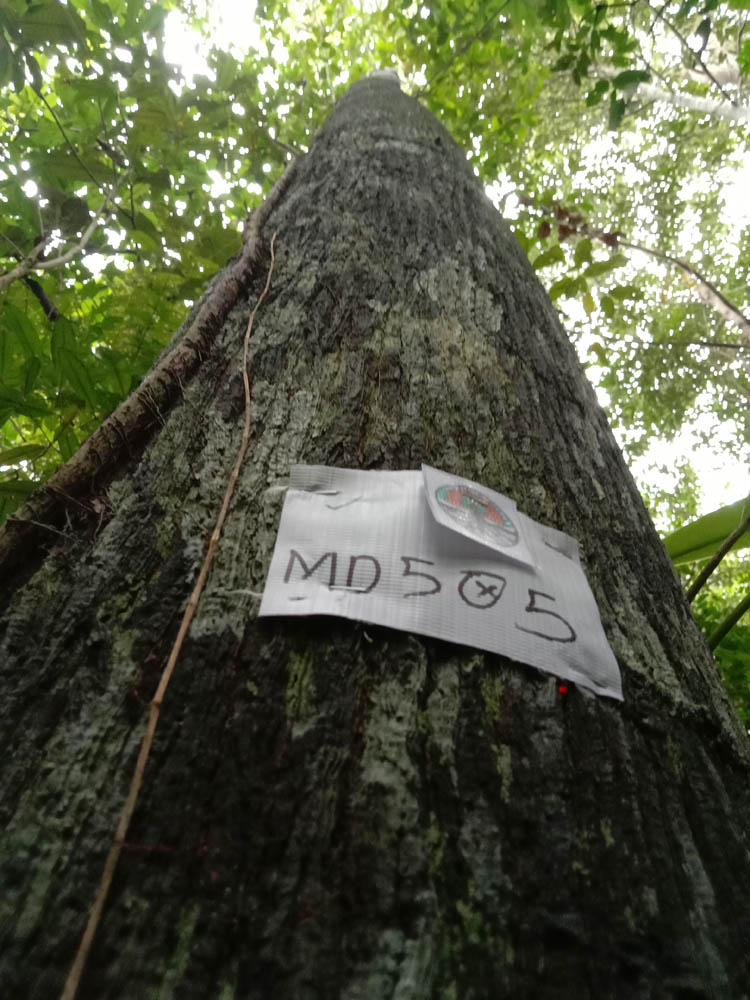 MD 5 ⓧ 5